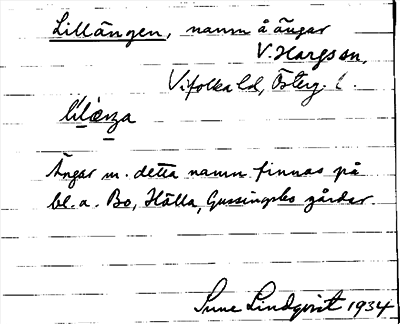 Lillängen, namn å ängar
V. Hargs sn,
Vifolka hd, Österg. l.
Ängar m. detta namn finnas på
bl.a. Bo, Hålla, gårdar.
Sune Lindqvist 1934